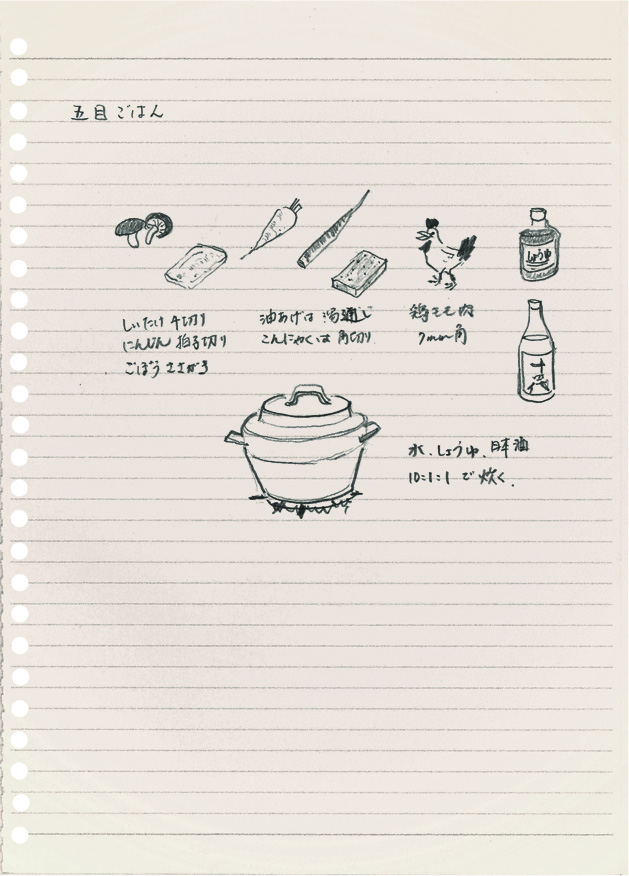 五目ごはん
しょうゆ
しいたけ 千切り
にんじん 拍子切り
ごぼう ささがき
油あげは 湯通し
こんにゃくは 角切り
鶏もも肉
7mm角
十四代
水、しょうゆ、日本酒
10:1:1 で 炊く。